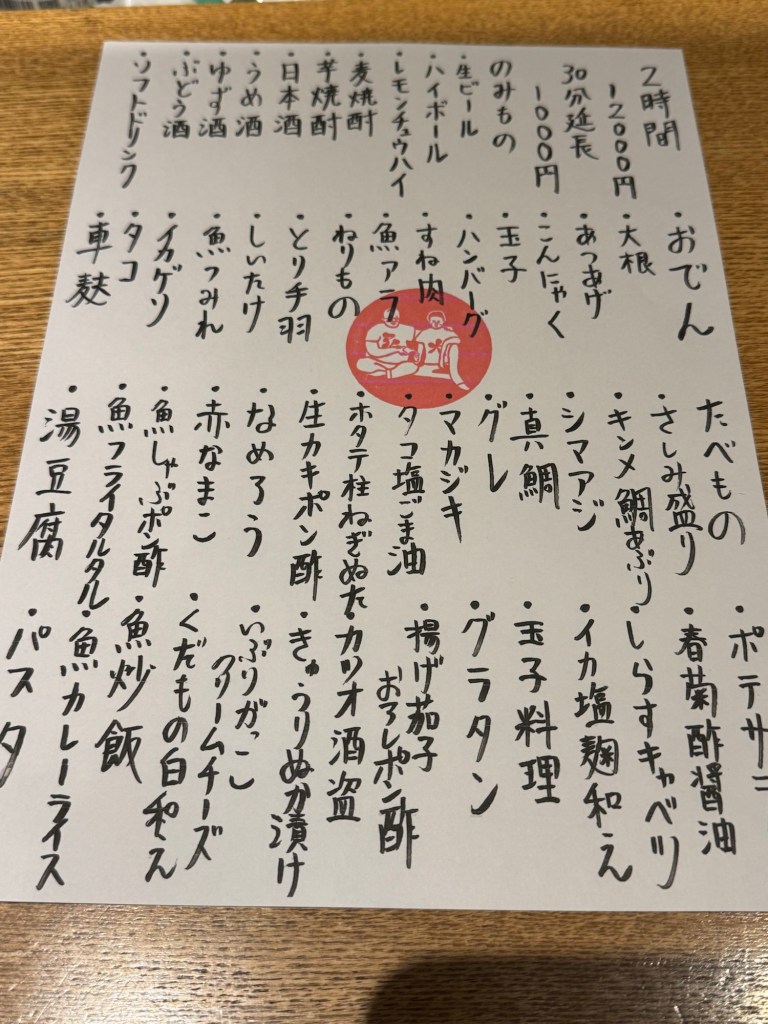 2時間
12000円
30分延長
1000円
のみもの
・生ビール
・ハイボール
・レモンチュウハイ
・麦焼酎
・芋焼酎
・日本酒
・うめ酒
・ゆず酒
・ぶどう酒
・ソフトドリンク
・おでん
・大根
・あつあげ
・こんにゃく
・玉子
・ハンバーグ
・すね肉
・魚アラ
・ねりもの
・とり手羽
・しいたけ
・魚つみれ
・イカゲソ
・タコ
・車麩
たべもの
・さしみ盛り
・キンメ鯛あぶり
・シマアジ
・真鯛
・グレ
・マカジキ
・タコ塩ごま油
・ホタテ柱ねぎぬた
・生カキポン酢
・なめろう
・赤なまこ
・魚しゃぶポン酢
・魚フライタルタル
・湯豆腐
・ポテサラ
・春菊酢醤油
・しらすキャベツ
・イカ塩麹和え
・玉子料理
・グラタン
・揚げ茄子
おろしポン酢
・カツオ酒盗
・きゅうりぬか漬け
・いぶりがっこ
クリームチーズ
・くだもの白和え
・魚炒飯
・魚カレーライス
・パスタ